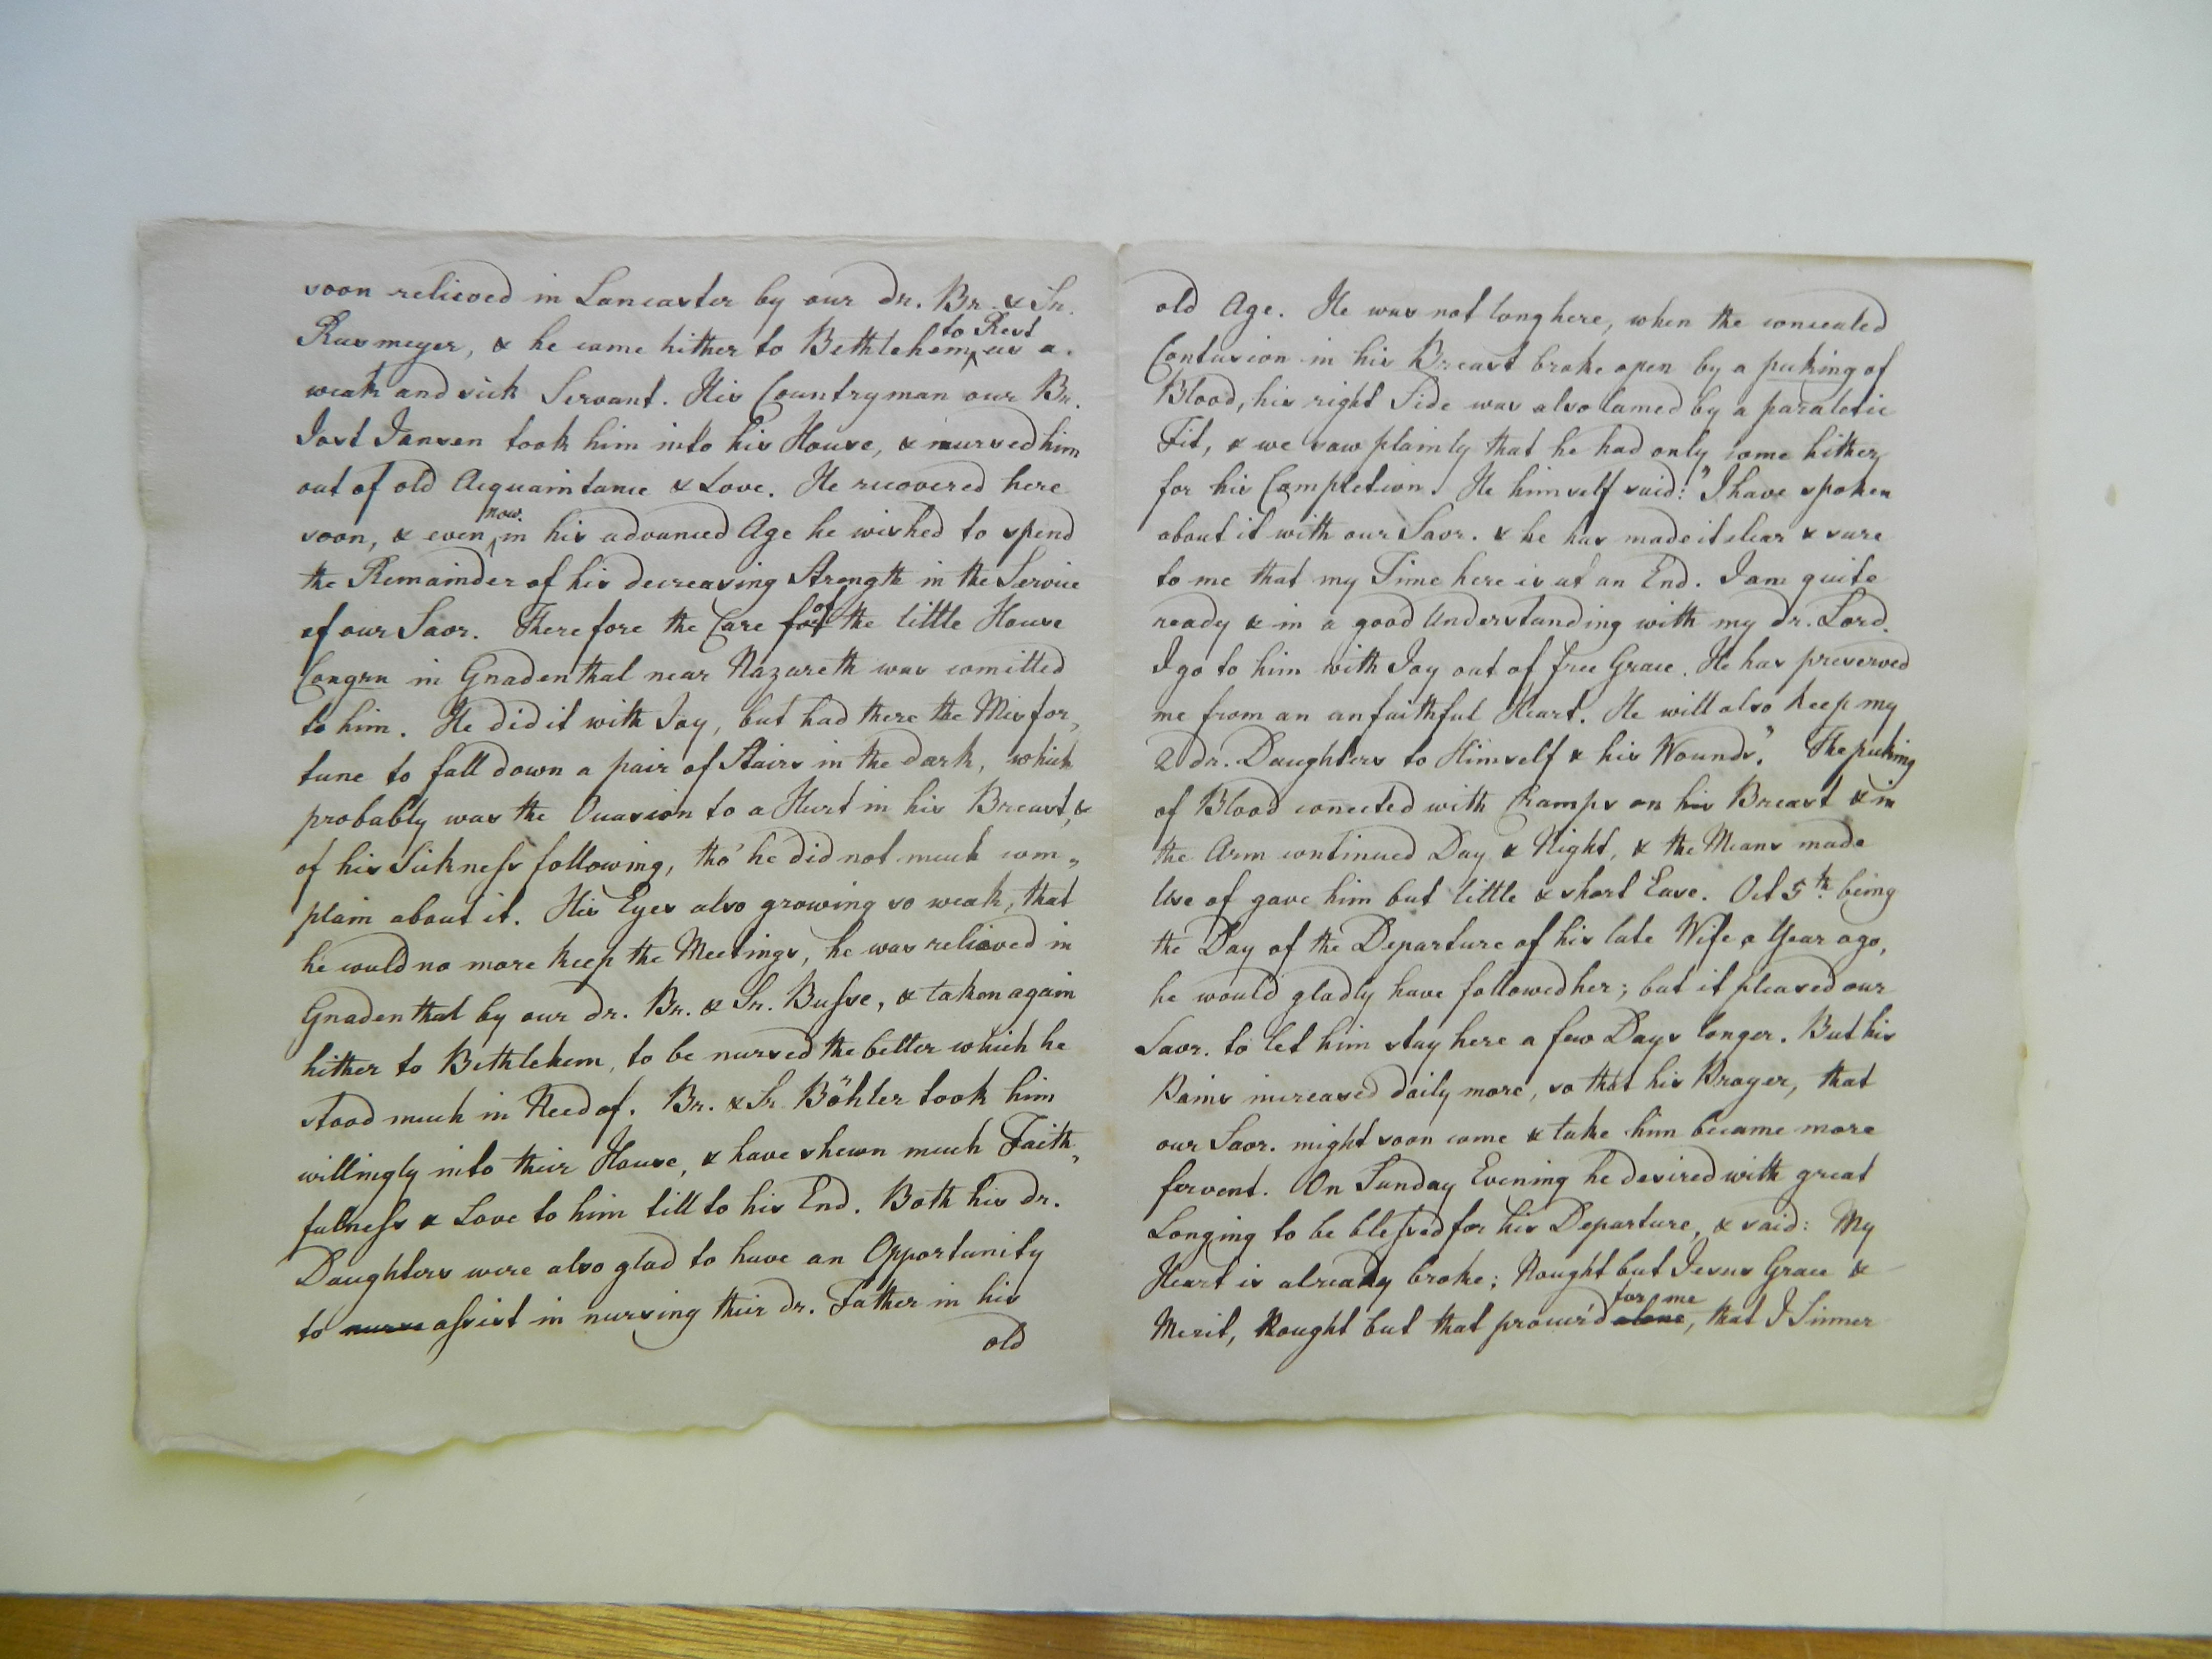 soon relieved in Lancaster by our dr. Br. & Sr.
Rusmeyer, & he came hither to Bethlehem to Rest as a
weak and sick Servant. His Countryman our Br.
Jost Jansen took him into his House, & nursed him
out of old Acquaintance & Love. He recovered here
soon, & even now in his advanced Age he wished to spend
the Remainder of his decreasing Strength in the Service
of our Savr. Therefore the Care for of the little House
Congrn in Gnadenthal near Nazareth was comitted
to him. He did it with Joy, but had there the Misfor„
tune to fall down a pair of Stairs in the dark, which
probably was the Occasion to a Hurt in his Breast, &
of his Sickness following, tho' he did not much com„
plain about it. His Eyes also growing so weak, that
he could no more keep the Meetings, he was relieved in
Gnadenthal by our dr. Br. & Sr. Busse, & taken again
hither to Bethlehem, to be nursed the better which he
stood much in Need of. Br. & Sr Böhler took him
willingly into their House, & have shewn much Faith„
fulness & Love to him till to his End. Both his dr.
Daughters were also glad to have an Opportunity
to nurse assist in nursing their dr. Father in his
old
old Age. He was not long here, when the concealed
Contusion in his Breast broke open by a puking of
Blood, his right Side was also lamed by a paraletic
Fit, & we saw plainly that he had only come hither
for his Completion. He himself said: "I have spoken
about it with our Savr. & he has made it clear & sure
to me that my Time here is at an End. I am quite
ready & in a good Understanding with my dr. Lord.
I go to him with Joy out of free Grace. He has preserved
me from an unfaithful Heart. He will also keep my
2 dr. Daughters to Himself & his Wounds." The puking
of Blood conected with Cramps on his Breast & in
the Arm continued Day & Night, & the Means made
Use of gave him but little & short Ease. Oct 5th. being
the Day of the Departure of his late Wife a Year ago,
he would gladly have followed her; but it pleased our
Savr. to let him stay here a few Days longer. But his
Pains increased daily more, so that his Prayer, that
our Savr. might soon come & take him became more
fervent. On Sunday Evening he desired with great
Longing to be blessed for his Departure, & said: My
Heart is already broke; Nought but Jesus Grace &
Merit, Nought but that procur'd alone for me, that I Sinner